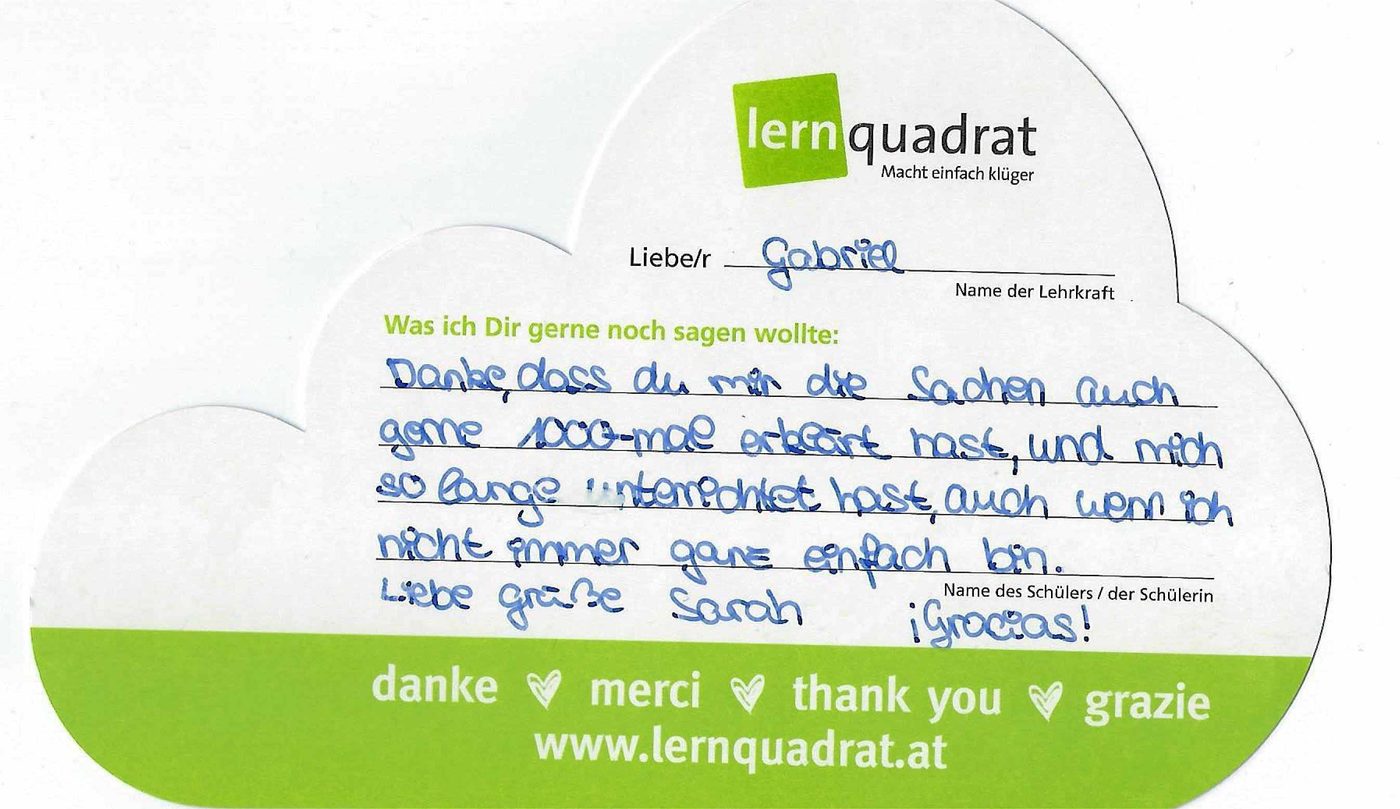 lernquadrat
Macht einfach klüger
Liebe/r Gabriel
Name der Lehrkraft
Was ich Dir gerne noch sagen wollte:
Danke, dass du mir die Sachen auch
gerne 1000-mal erklärt hast, und mich
so lange unterrichtet hast, auch wenn ich
nicht immer ganz einfach bin.
Name des Schülers / der Schülerin
Liebe grüße Sarah ¡Gracias!
danke merci thank you grazie
www.lernquadrat.at